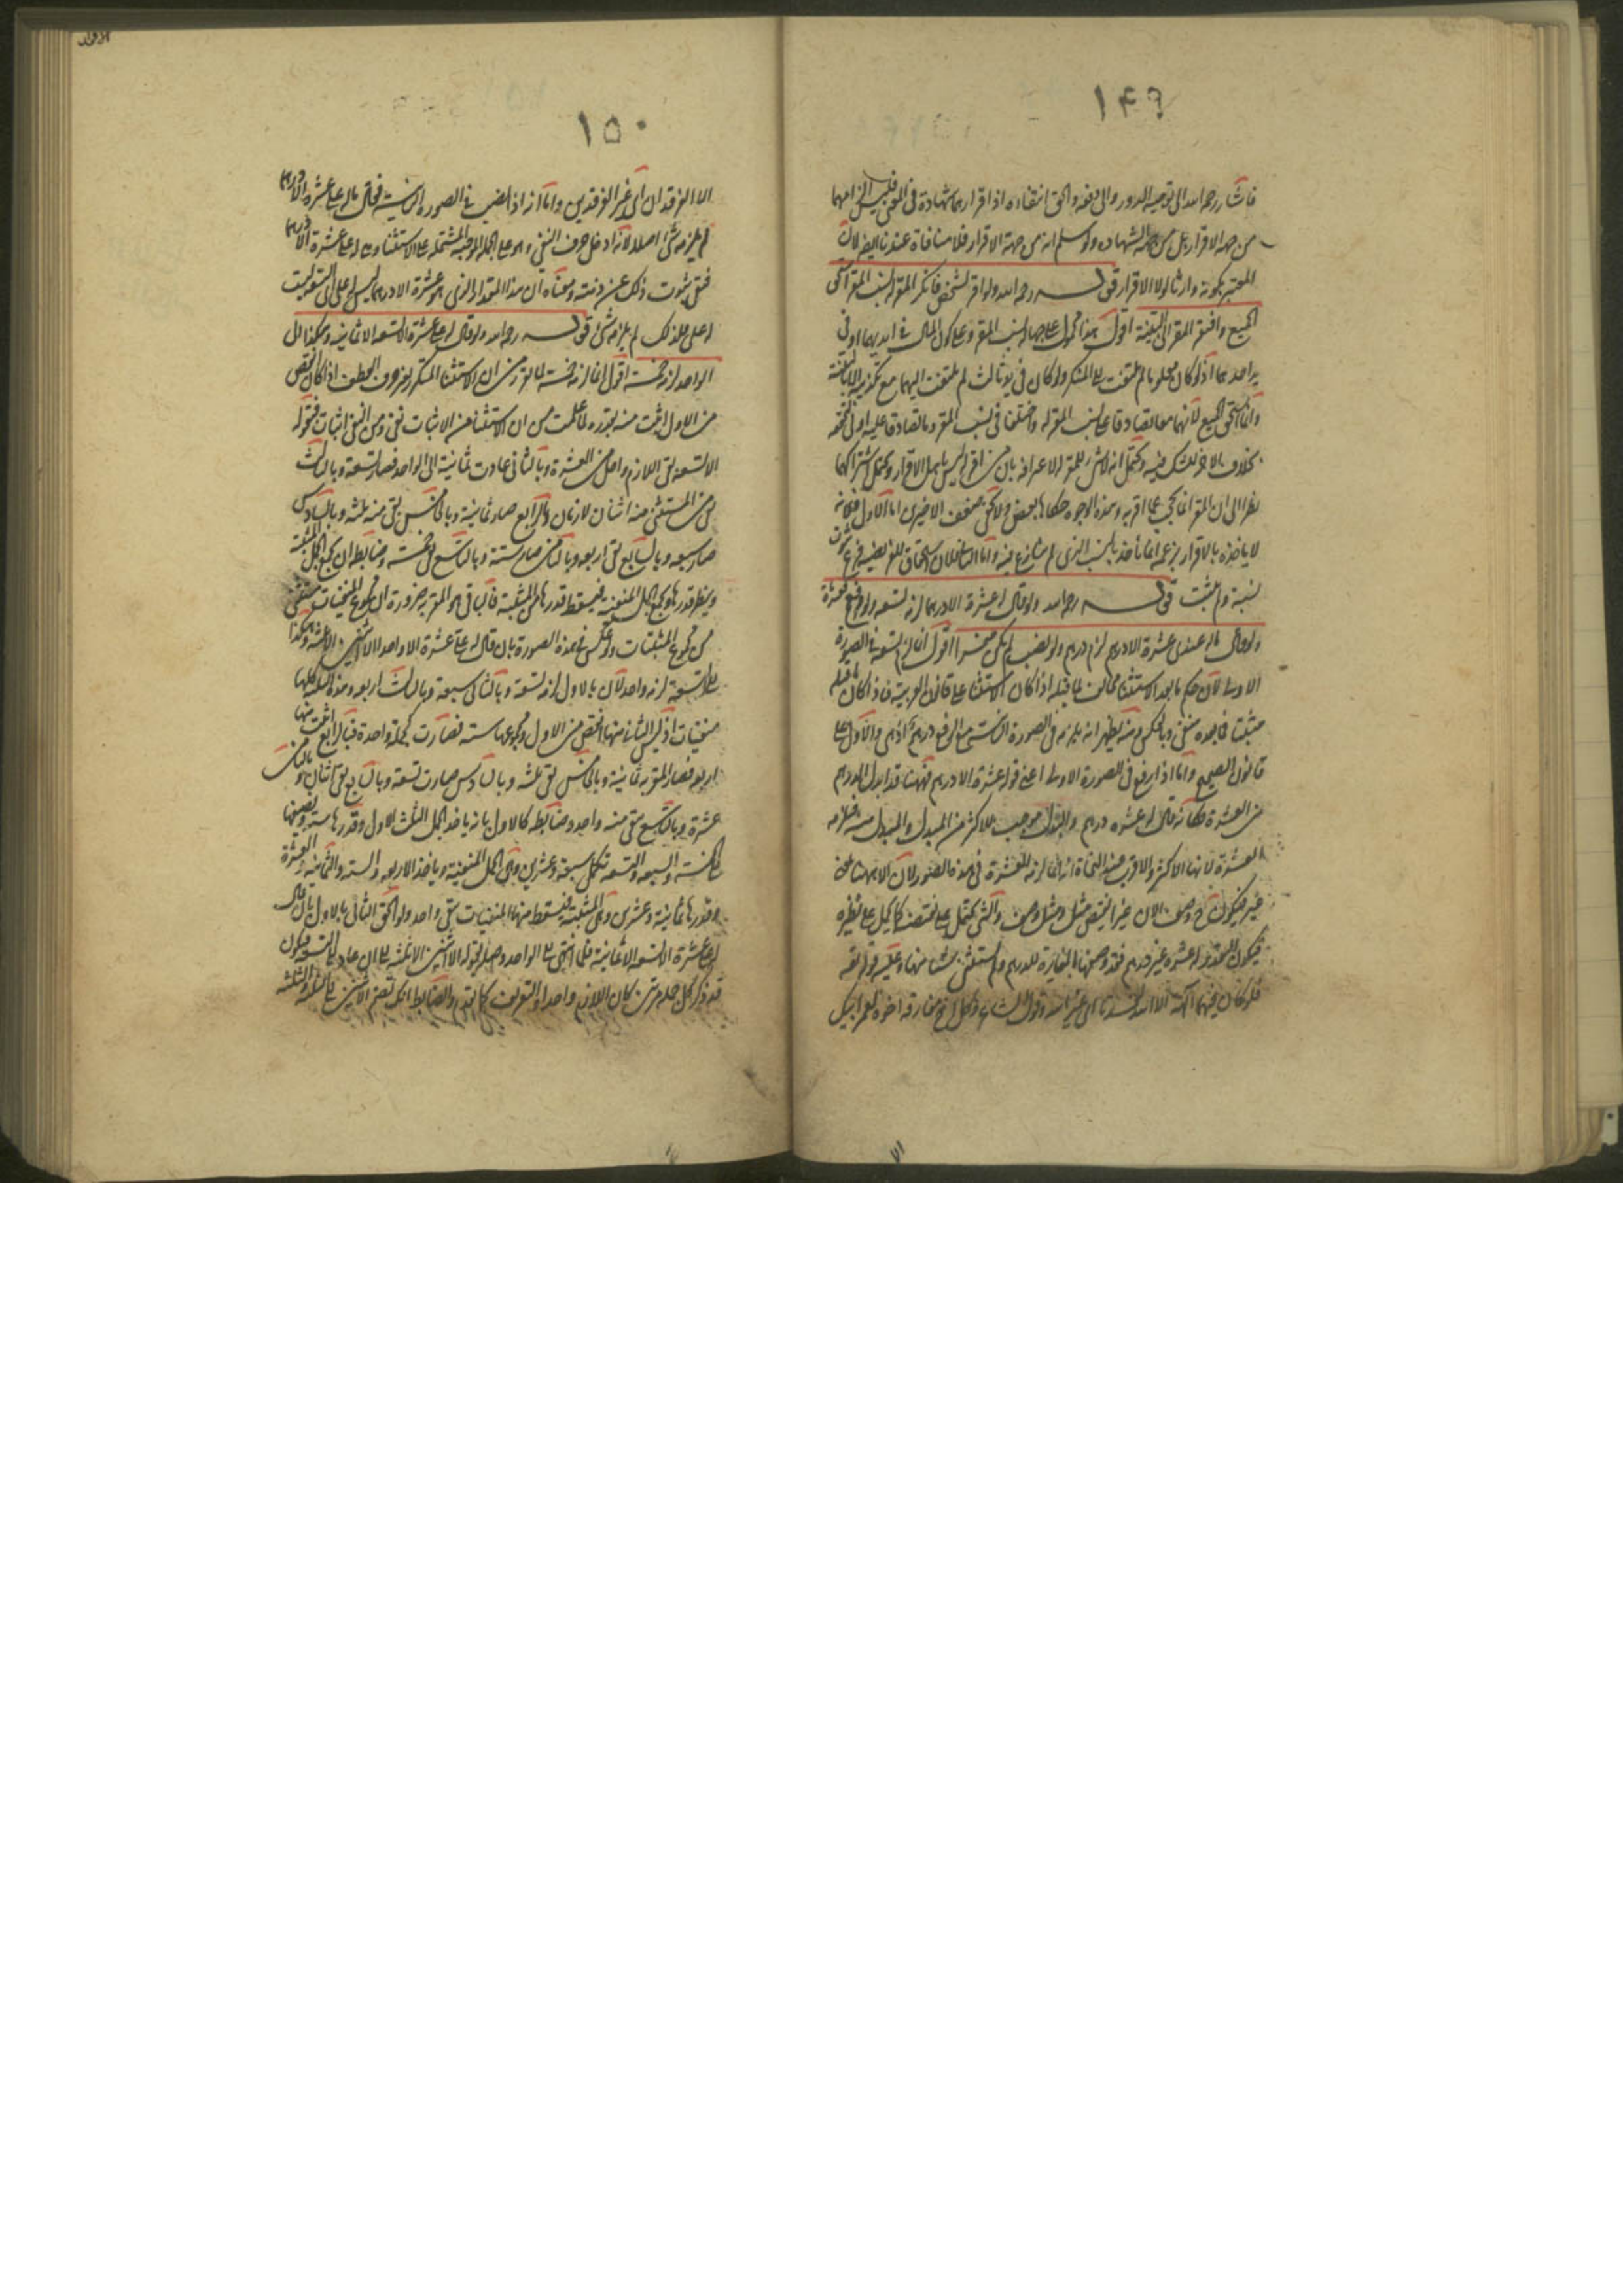 ١٤٩
فاشار رحمه الله الى توجيه الدور والى دفعه والحق انتفاءه اذ اقرارهما شهادة فى المعنى فليس الزامهما
من جهة الاقرار بل من جهة الشهادة ولو سلم انه من جهة الاقرار فلا منافاة عندنا ايضا لان
المعتبر بكونه وارثا لولا الاقرار قوله رحمه الله ولو اقر لشخص فانكر المقر له نسب المقر استحق
الجميع وافتقر المقر الى البينة اقول هذا محمول على جهالة نسب المقر وعلى كون المال فى ايديهما او فى
يد احدهما اذ لو كان معلوما لم يلتفت الى المنكر ولو كان فى يد ثالث لم يلتفت اليهما مع تكذيبه الا بالبينة
وانما استحق الجميع لانهما معا تصادقا على نسب المقر له واختلفا فى نسب المقر وما تصادقا عليه اولى
بخلاف الاخر للشك فيه ويحتمل انه لا شىء للمقر له لاعترافه بان من اقر له ليس باهل الاقرار ويحتمل اشتراكهما
نظرا الى ان المقر انما يجب عما اقر به وهذه الوجوه حكاها بعض ولا يخفى ضعف الاخيرين اما الاول فلانه
لا ياخذه بالاقرار بزعمه انما ياخذ بالنسب الذى لم ينازع فيه واما الثانى فلان استحقاق المقر نصيبه فرع ثبوت
نسبه ولم يثبت قوله رحمه الله ولو قال له عشرة الا درهما لزمه تسعة ولو رفع فعشرة
ولو قال ماله عندى عشرة الا درهم لزم درهم ولو نصب لم يكن مقرا اقول انما لزم تسعة فى الصورة
الاولى لان حكم ما بعد الاستثنا مخالف لما قبله اذا كان الاستثنا على قانون العربية فاذا كان ما قبله
مثبتا فما بعده منفى وبالعكس ومنه يظهر انه يلزمه فى الصورة الثالثة مع الرفع درهم اذ هى والاولى على
قانون الصحيح واما اذا رفع فى الصورة الاولى اعنى قوله عشرة الا درهم فههنا قد ابدل الدرهم
من العشرة فكانه قال له عشرة درهم والبدل موجب للاكثر من المبدل والمبدل منه فلزمه
العشرة لانها الاكثر والاقرب عند النحاة انه انما لزمه العشرة فى هذه الصورة لان الا ههنا بمعنى
غير فيكون وصف لان غير يقتضى مثل وصف والشىء يحمل على نقيضه كما يحمل على نظيره
فيكون التقدير له عشرة غير درهم فقد وصفها بالمغايرة للدرهم ولم يستثن شيئا منها وعليه قوله تعالى
فلو كان فيهما الهة الا الله لفسدتا اى غير الله وقول الشاعر وكل اخ مفارقه اخوه لعمر ابيك
١٥٠
الا الفرقدان اى غير الفرقدين واما انه اذا نصب فى الصورة الثانية فقال ماله على عشرة الا درهما
لم يلزمه شىء اصلا لانه ادخل حرف النفى وهو على الجملة الموجبة المشتملة على الاستثنا وهى له على عشرة الا درهما
فنفى ثبوت ذلك عن ذمته ومعناه ان هذا المقدار الذى هو عشرة الا درهما ليس له على اى التسعة ليست
له على فلذلك لم يلزمه شىء قوله رحمه الله ولو قال له على عشرة الا تسعة الا ثمانية وهكذا الى
الواحد لزمه خمسة اقول انما لزمه خمسة لما تقرر من ان الاستثنا المتكرر بغير حرف العطف اذا كان انقص
من الاول اثبت منه بقدره ولما علمت من ان الاستثنا من الاثبات نفى ومن النفى اثبات فبقوله
الا تسعة بقى اللازم واحد من العشرة وبالثانى عادت ثمانية الى الواحد فصار تسعة وبالثالث
بقى من المستثنى منه اثنان لازمان وبالرابع صار ثمانية وبالخامس بقى منه ثلثة وبالسادس
صار سبعة وبالسابع بقى اربعة وبالثامن صار ستة وبالتاسع بقى خمسة وضابطه ان تجمع الجمل المثبتة
وينظر قدرها وتجمع الجمل المنفية فيسقط قدرها من المثبتة فالباقى هو المقر به ضرورة ان مجموع المنفيات مستثنى
من مجموع المثبتات ولو عكس فى هذه الصورة بان قال له على عشرة الا واحدا الا اثنين الا ثلثة وهكذا
الى تسعة لزمه واحد لان بالاول لزمه تسعة وبالثانى سبعة وبالثالث اربعة وهذه الثلثة كلها
منفيات اذ ليس الثانى منها انقص من الاول ومجموعها ستة فصارت كجملة واحدة فبالرابع اثبت منها
اربعة فصار المقر به ثمانية وبالخامس بقى ثلثة وبالسادس صارت تسعة وبالسابع بقى اثنان وبالثامن
عشرة وبالتاسع بقى منه واحد وضابطه كالاول بانه ياخذ الجمل الثلث الاول وقدرها ستة ويضمها
الى الخمسة والسبعة والتسعة تكمل سبعة وعشرين وهى الجمل المنفية وياخذ الاربعة والستة والثمانية والعشرة
وقدرها ثمانية وعشرون وهى المثبتة فيسقط منها المنفيات يبقى واحد ولو الحق الثانى بالاول بان قال
له على عشرة الا تسعة الا ثمانية فلما انتهى الى الواحد وصله بقوله الا اثنين الا ثلثة الى ان عاد الى التسعة فيكون
قد ذكر كل جملة مرتين كان اللازم واحدا والتعريف كما تقدم والضابط انك تضم الاثنين الى الثلثة والثلثة